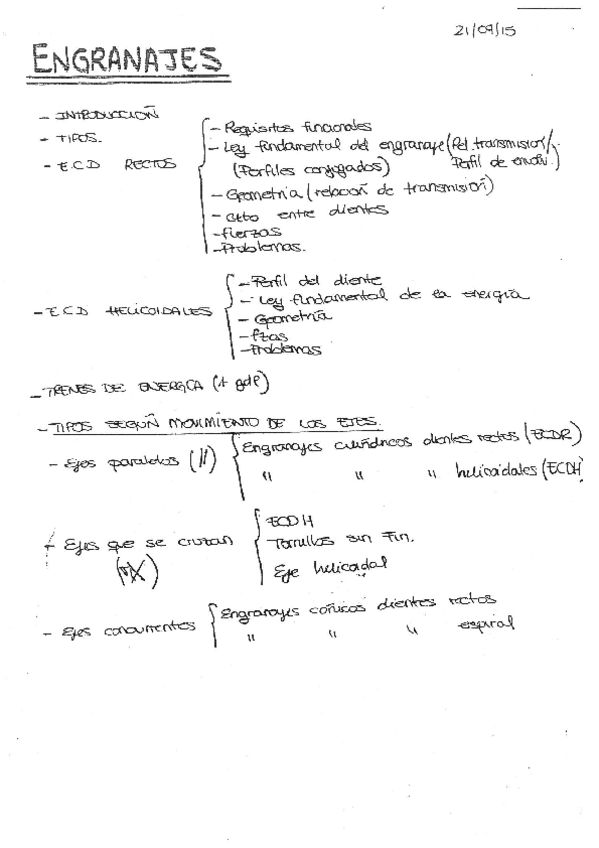 21/09/15
ENGRANAJES
- INTRODUCCIÓN
- TIPOS.
- E.C.D RECTOS
- Requisitos funcionales
- Ley fundamental del engranaje (Rel. transmision/
(Perfiles conjugados) Perfil de envolv.)
- Geometría (relación de transmisión)
- Ctto entre dientes
- fuerzas
- Problemas.
- E.C.D HELICOIDALES
- Perfil del diente
- Ley fundamental de la energía
- Geometría
- fzas
- Problemas
- TRENES DE ENERGÍA (1 gdl)
- TIPOS SEGÚN MOVIMIENTO DE LOS EJES.
- Ejes paralelos (//)
Engranajes cilíndricos dientes rectos (ECDR)
" " " helicoidales (ECDH)
- Ejes que se cruzan
ECDH
Tornillos sin Fin.
Eje helicoidal
- Ejes concurrentes
Engranajes cónicos dientes rectos
" " " espiral